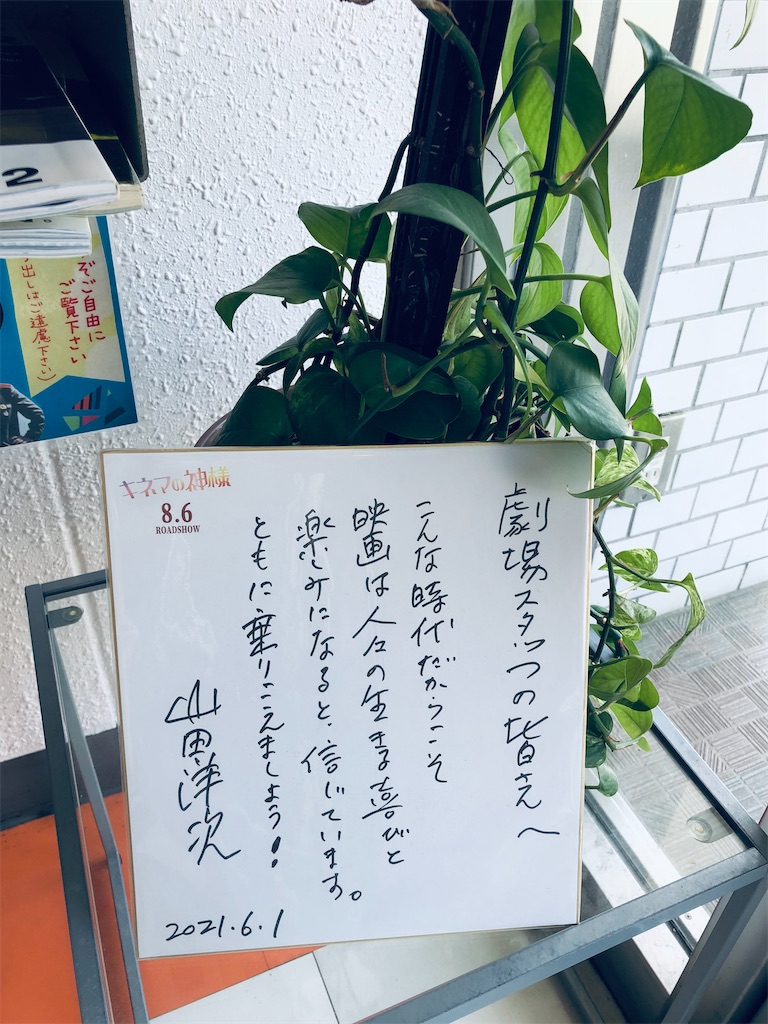 2
ぞご自由に
ご覧下さい
出しはご遠慮下さい)
キネマの神様
8.6
ROADSHOW
劇場スタッフの皆さんへ
こんな時代だからこそ
映画は人々の生きる喜びと
楽しみになると、信じています。
ともに乗りこえましょう!
山田洋次
2021.6.1